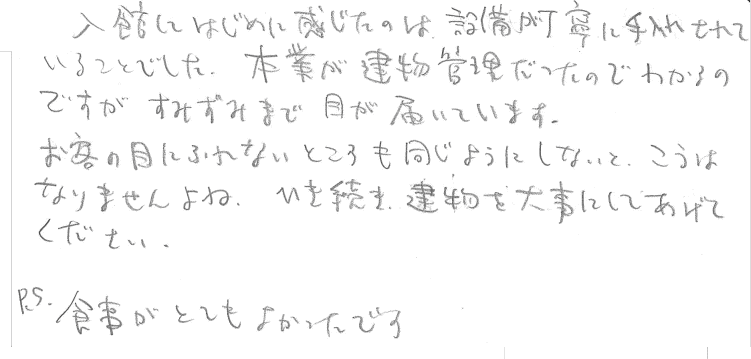 入館してはじめに感じたのは、設備が丁寧に手入れされて
いることでした。本業が建物管理だったのでわかるの
ですが すみずみまで目が届いています。
お客の目にふれないところも同じようにしないと、こうは
なりませんよね。 建物を大事にしてあげて
ください。
P.S. 食事がとてもよかったです